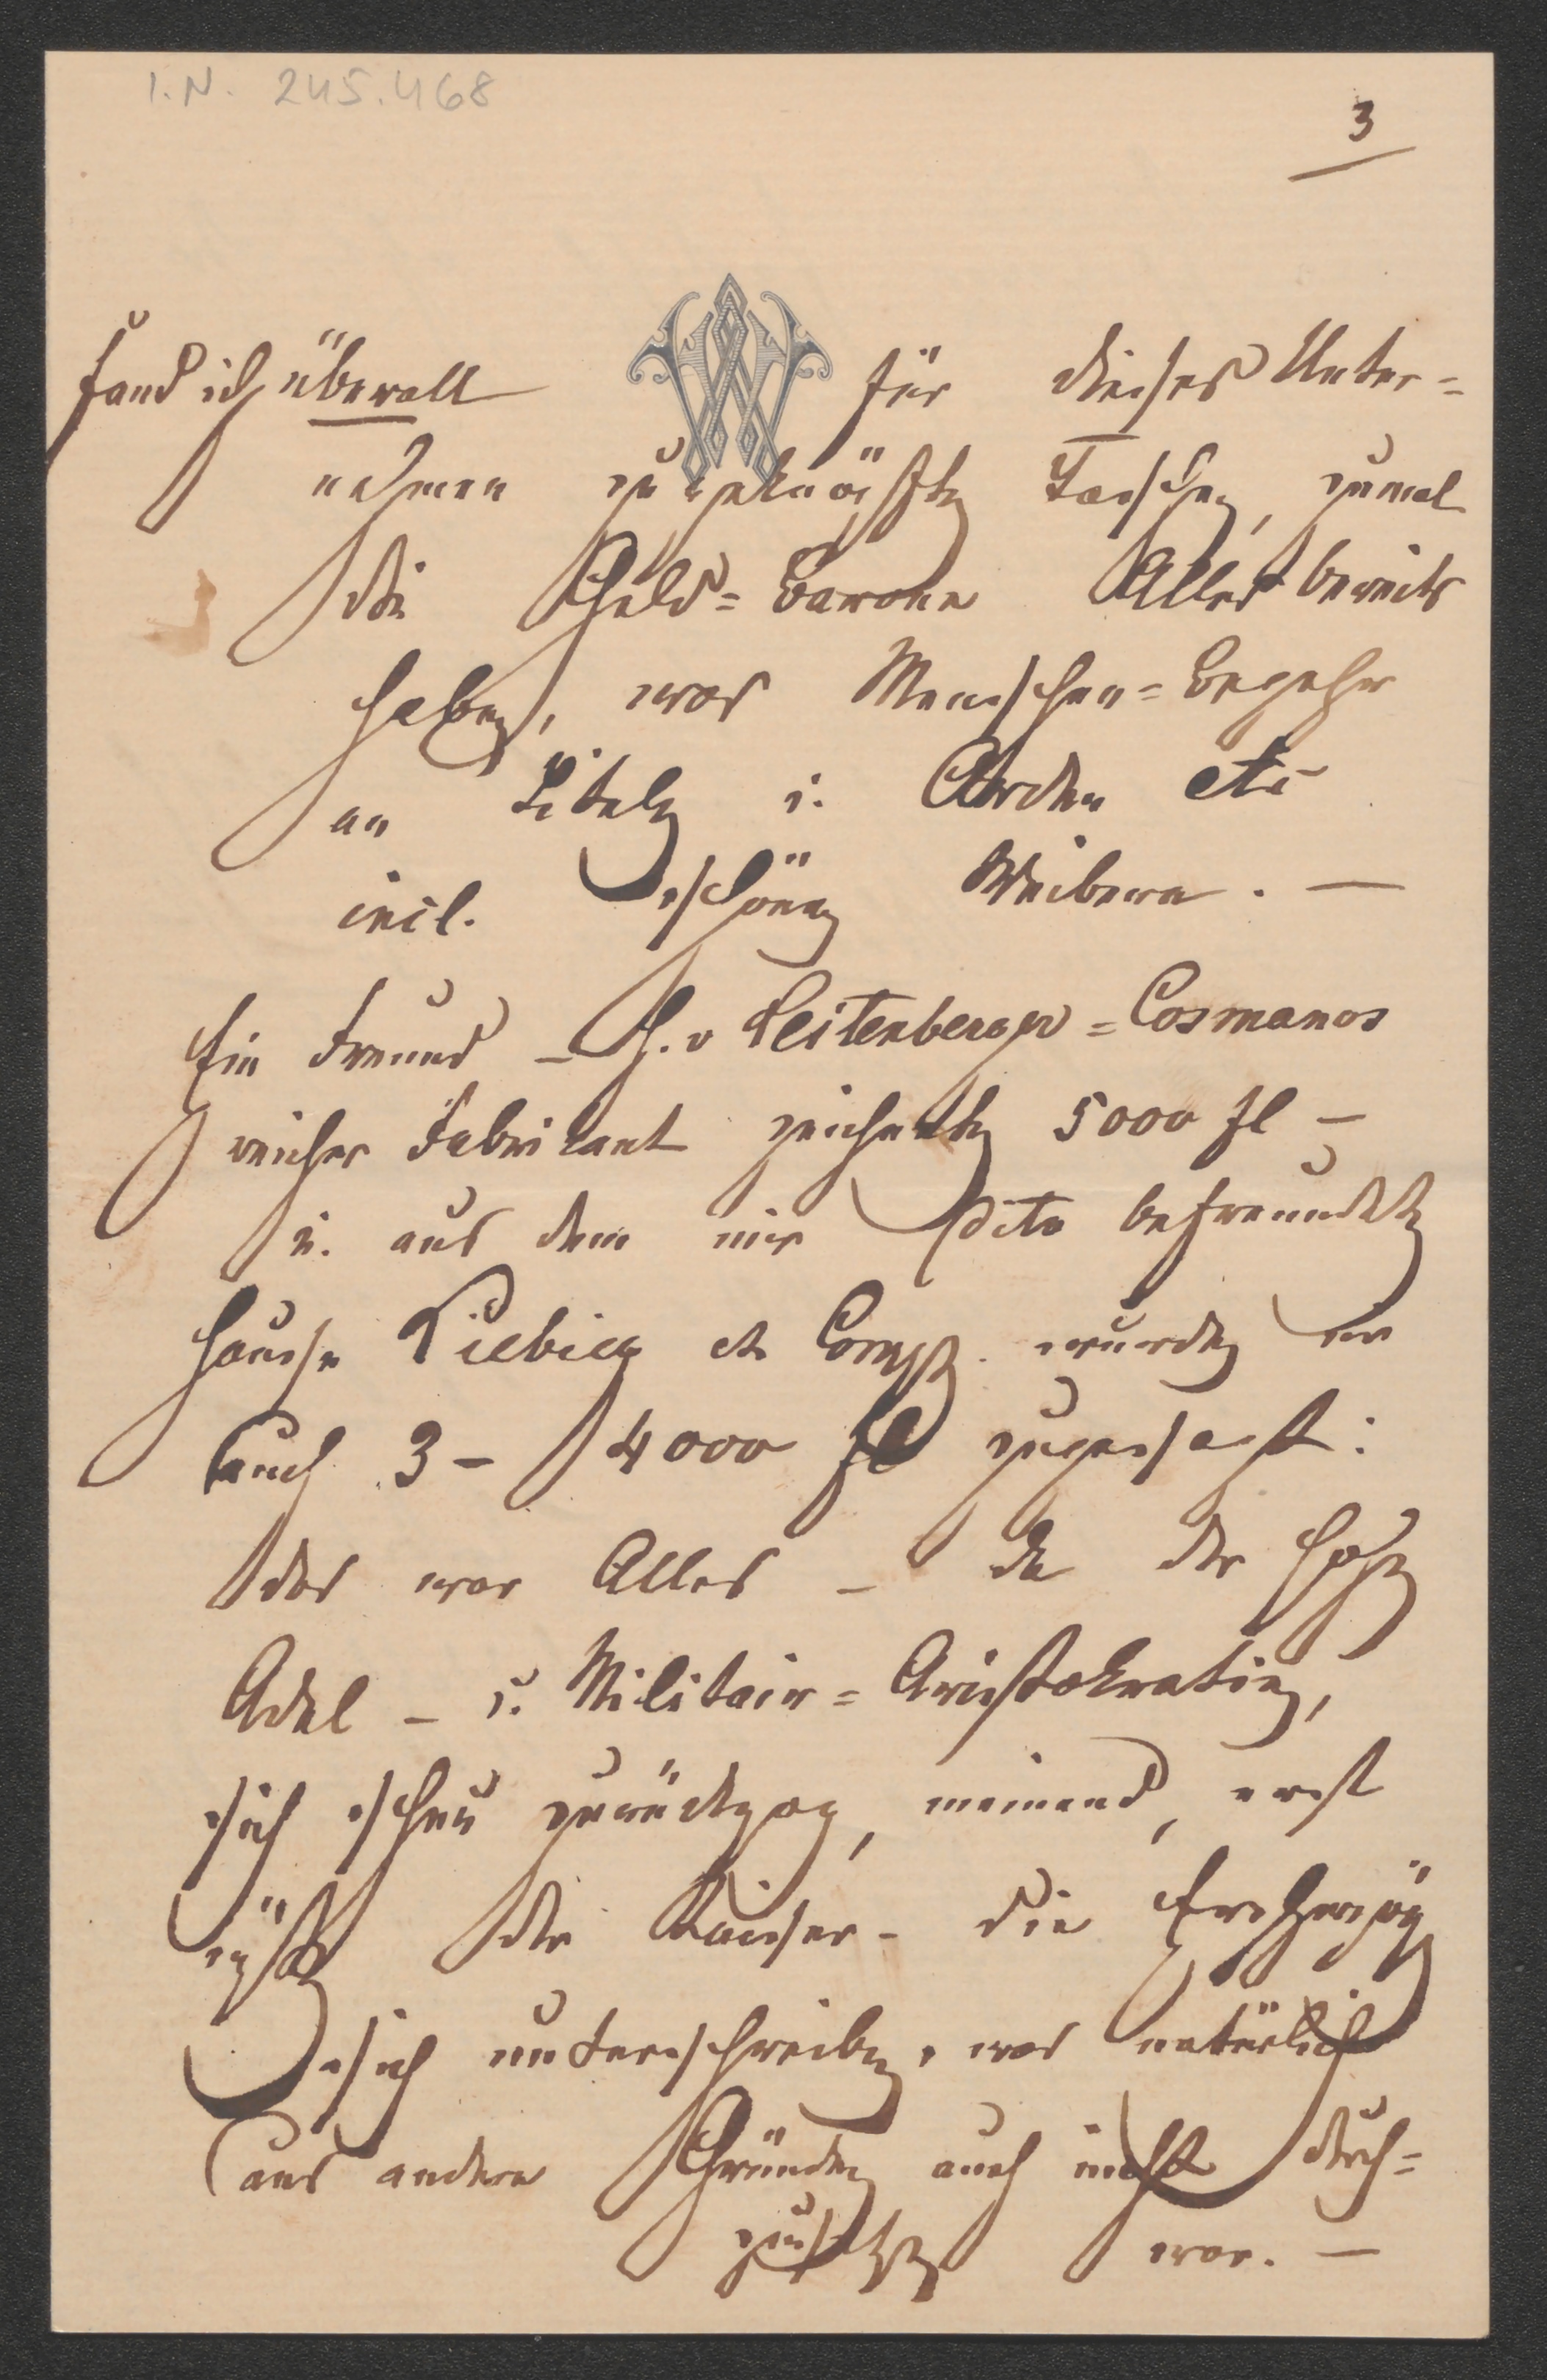 I.N. 245.468
3
fand ich überall für dieses Unter=
nehmen zugeknöpfte Taschen, zumal
die Geld=Barone Alles bereits
haben, was Menschen=Begehr
an Titeln u. Orden etc
incl. schönen Weibern. —
Ein Freund – H. v Leitenberger=Cosmanos
reicher Fabrikant zeichnete 5000 fl –
u. aus dem mir dito befreundeten
Hause Liebieg et Comp. wurden mir
auch 3 – 4000 fl zugesagt:
das war Alles – da der hohe
Adel – u. Militair=Aristokratie,
sich scheu zurückzog, meinend, erst
müßte der Kaiser – die Erzherzöge
sich unterschreiben, was natürlich
aus andern Gründen auch nicht durch=
zusetzen war. —